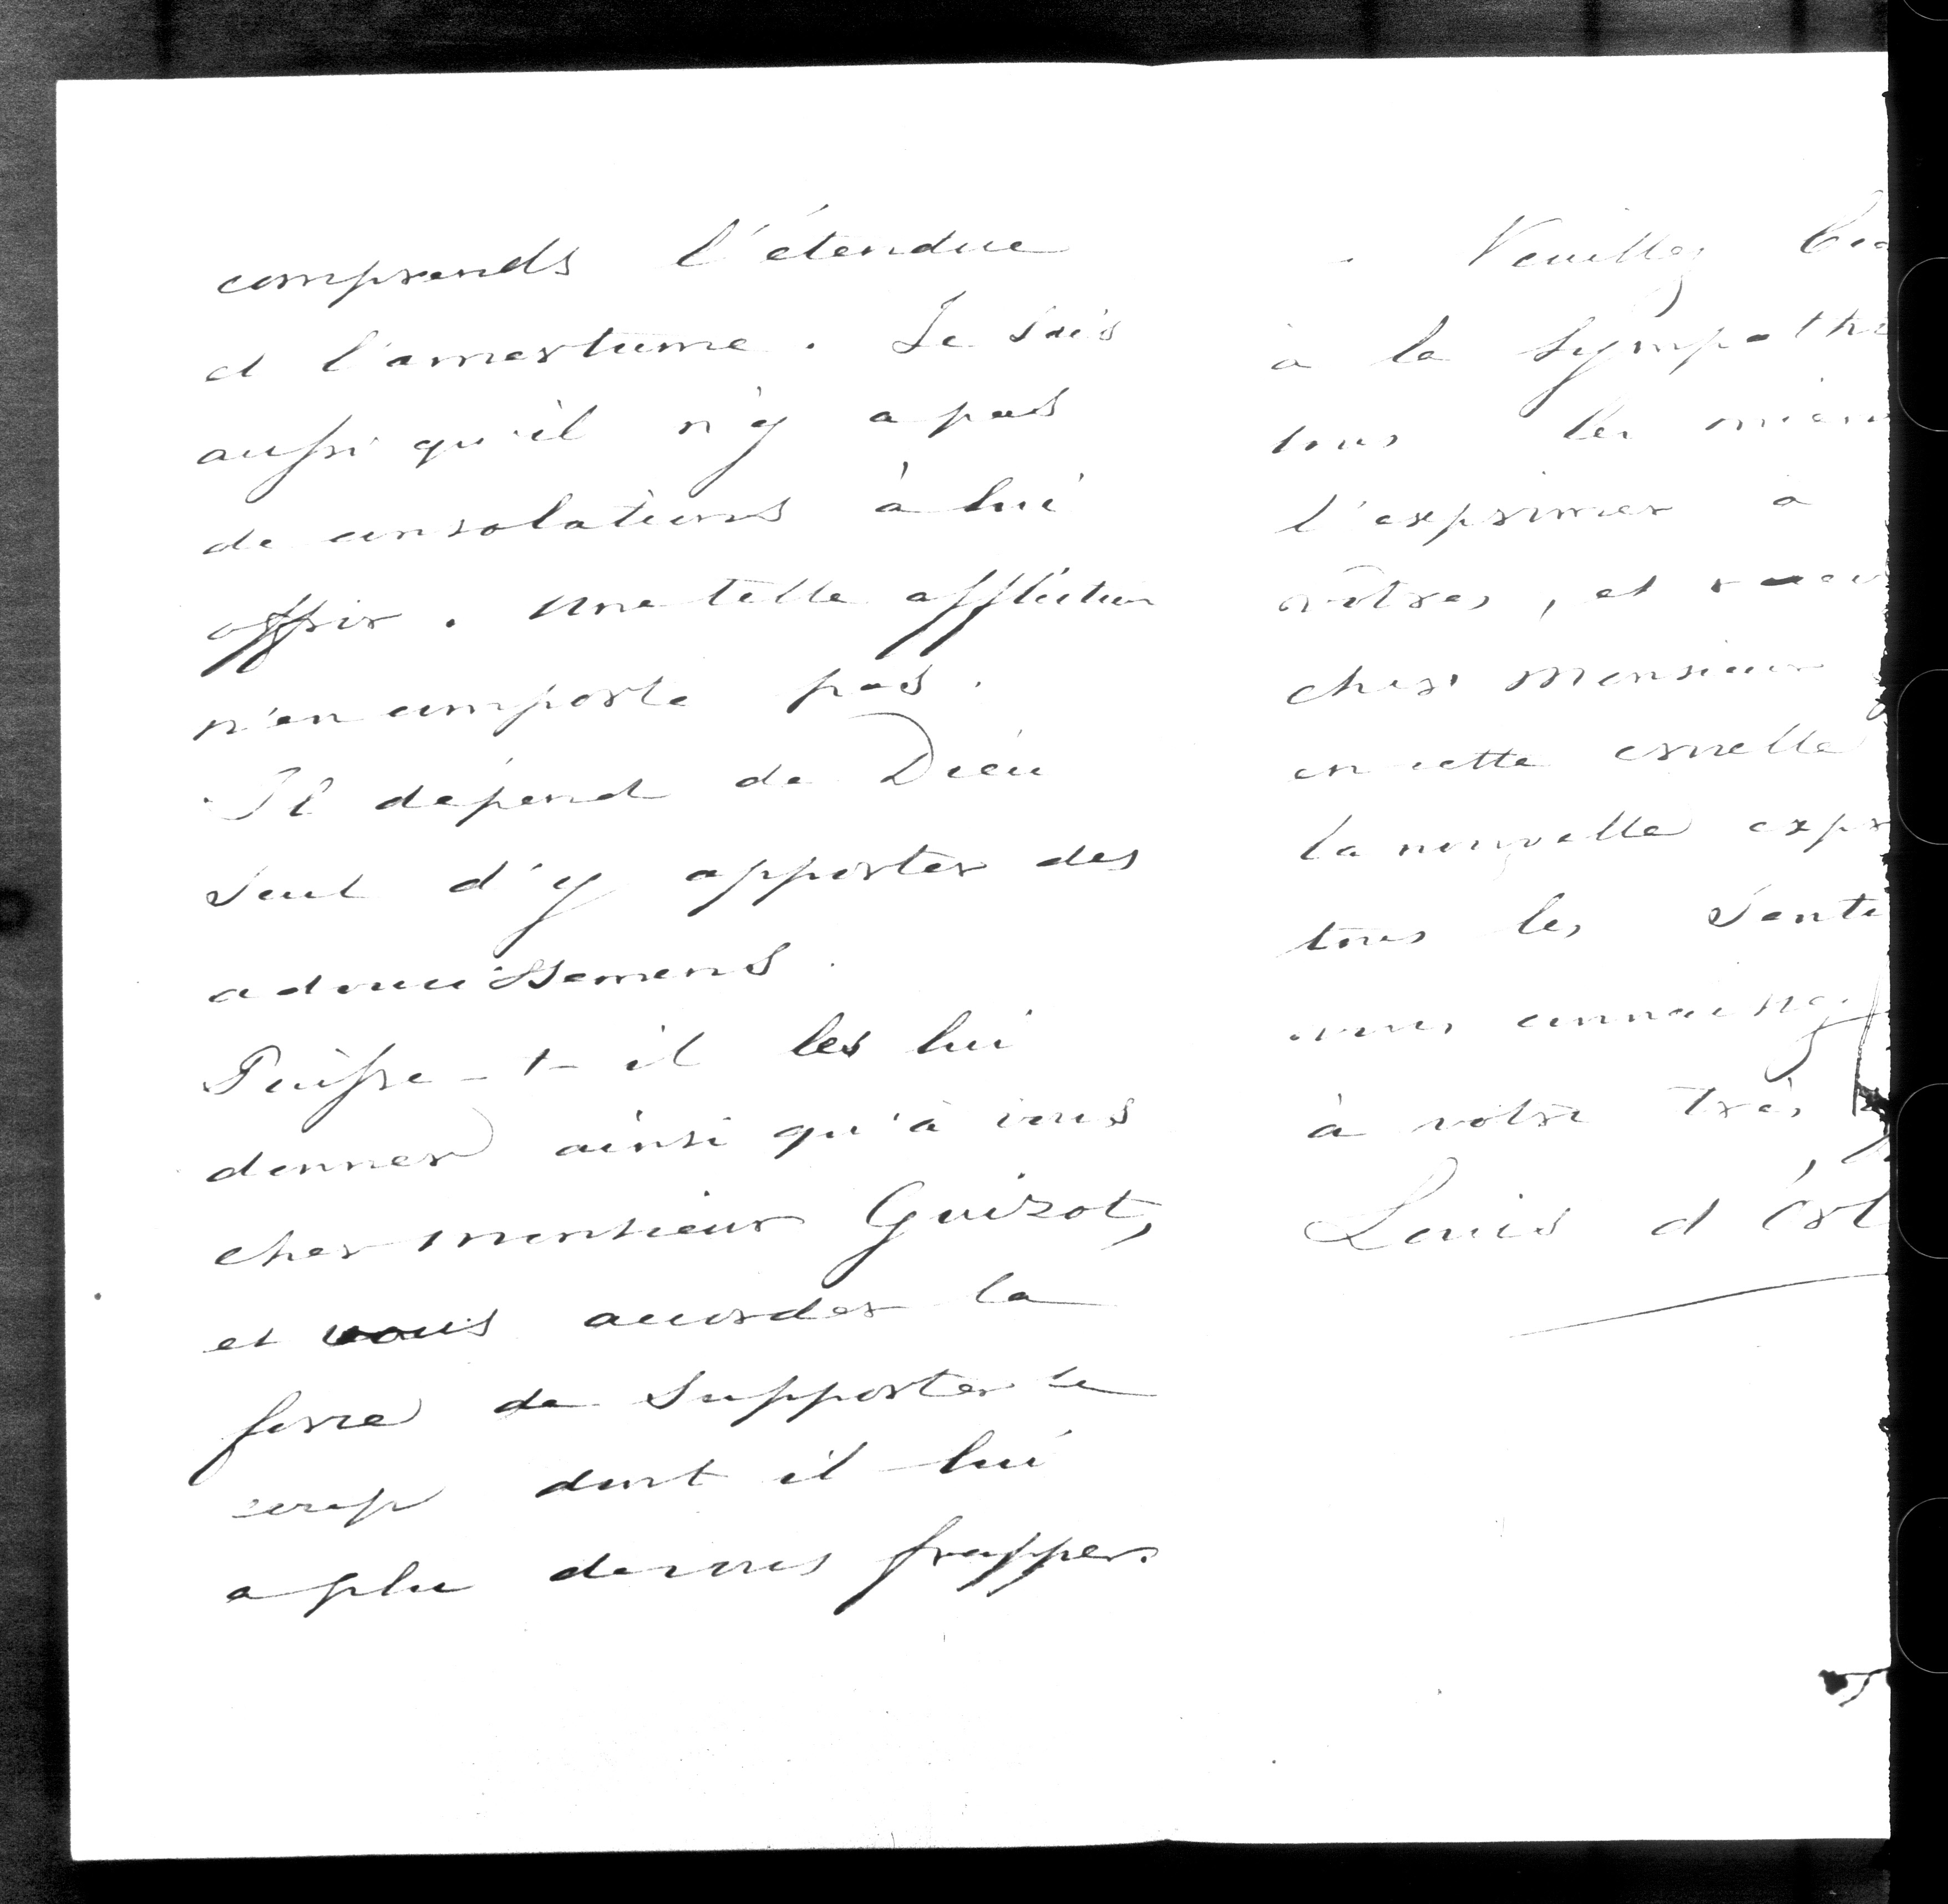 comprends l'étendue
et l'amertume. Je sais
aussi qu'il n'y a pas
de consolations à lui
offrir. Une telle affliction
n'en comporte pas.
Il dépend de Dieu
seul d'y apporter des
adoucissemens.
Puisse-t-il les lui
donner ainsi qu'à vous
cher monsieur Guizot,
et vous accorder la
force de supporter le
coup dont il lui
a plu de vous frapper.
Veuillez
à la sympathi
tous les mien
l'exprimer à
vôtres, et recev
cher monsieur
en cette cruelle
la nouvelle expr
tous les senti
vous connaissez
à votre très
Louis d'Orl